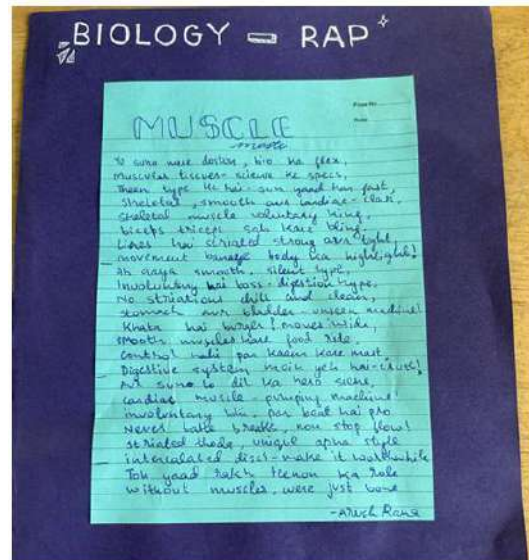 BIOLOGY - RAP
Page No.
Date
MUSCLE
Yo suno mere doston, bio ka flex,
Muscular tissues - science ke specs,
Teen type ke hai - sun yaad kar fast,
Skeletal, smooth aur cardiac - class,
Skeletal muscle voluntary king,
biceps triceps sab kare bling.
Lines hai striated strong aur tight,
movement banaye body ka highlight!
Ab aaya smooth, silent type,
Involuntary hai boss - digestion hype,
No striations chill and clean,
stomach aur bladder - unseen machine!
Khata hai burger! moves inside,
smooth muscles kare food ride,
Control nahi par kaam kare mast,
Digestive system mein yeh hai
Ab suno to dil ka hero scene,
Cardiac muscle - pumping machine!
involuntary bhi, par beat hai pro
Never take breaks, non stop flow!
striated thoda, unique apna style
intercalated discs - make it worthwhile
Toh yaad rakh teenon ka role
without muscles, were just bone
- Arush Rana